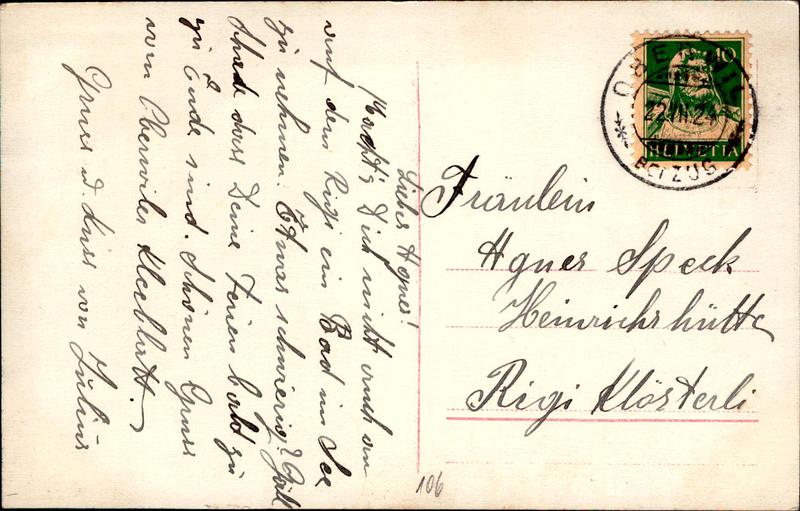 Liebes Agnes!
Macht's Dich nicht auch an
auf dem Rigi ein Bad im See
zu nehmen. Etwas schwierig? Gäll
Schade dass Deine Ferien bald zu
zu Ende sind. Schönen Gruss
vom Oberwiler Kleeblatt.
Gruss u. Kuss von Julius
Fräulein
Agnes Speck
Heinrichshütte
Rigi Klösterli
10
HELVETIA
OBERWIL
BEI ZUG
106